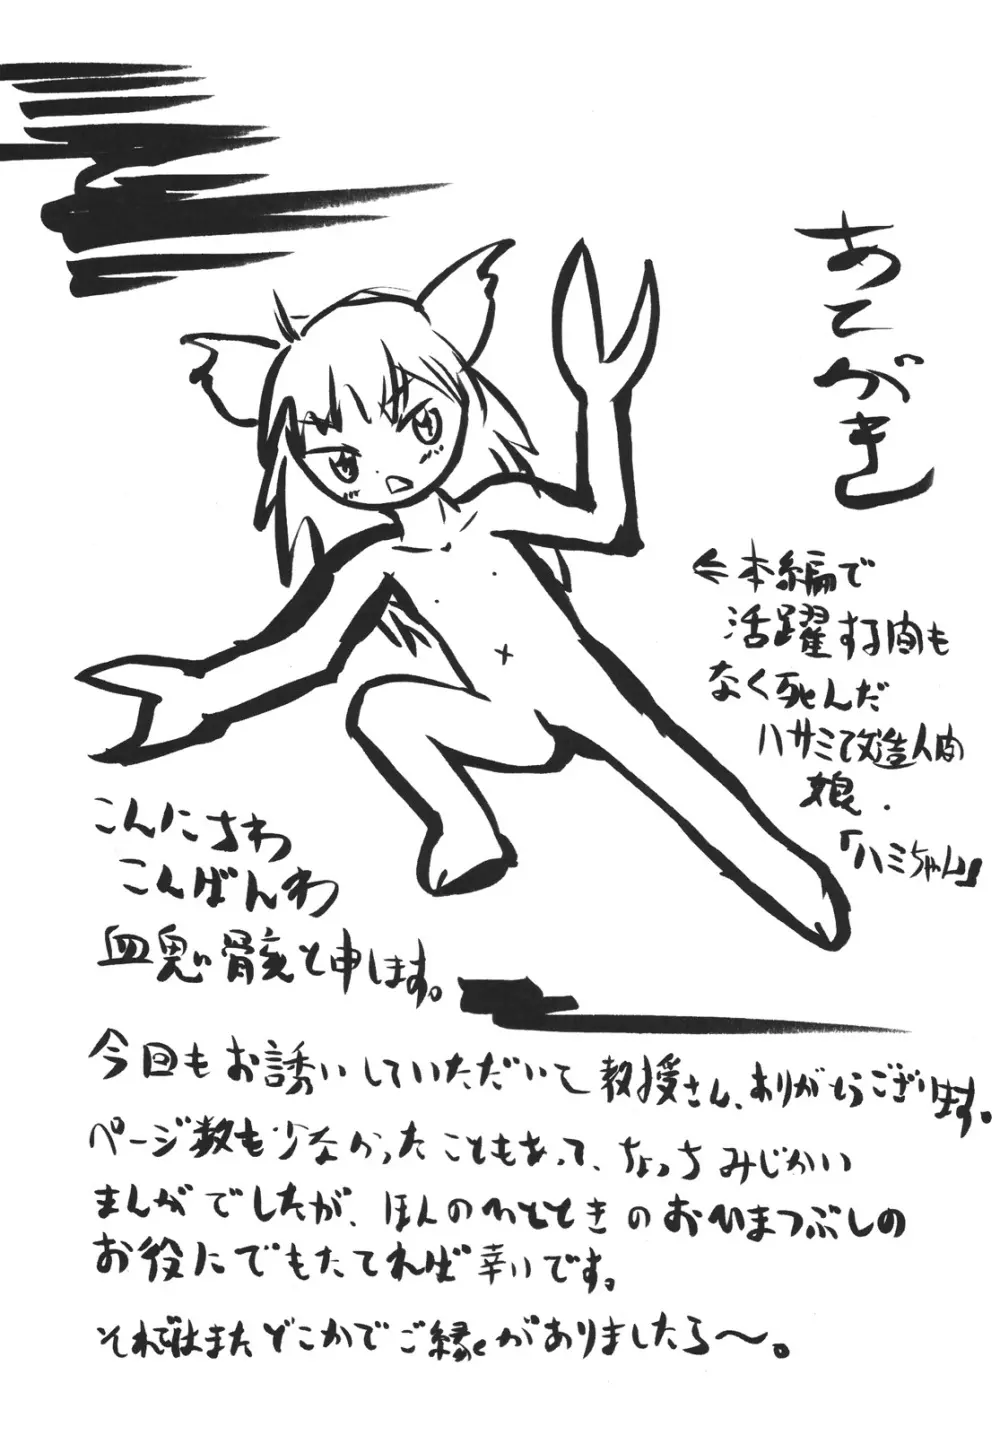 あとがき
⇐本編で
活躍する間も
なく死んだ
ハサミで改造人間
娘.
「ハミちゃん」
こんにちわ
こんばんわ
骨亥と申します。
今回もお誘いしていただいて教授さん、ありがとうございます。
ページ数も少なかったこともあって、ちょっちみじかい
まんがでしたが、ほんのひとときのおひまつぶしの
お役にでもたてれば幸いです。
それではまたどこかでご縁がありましたら〜。